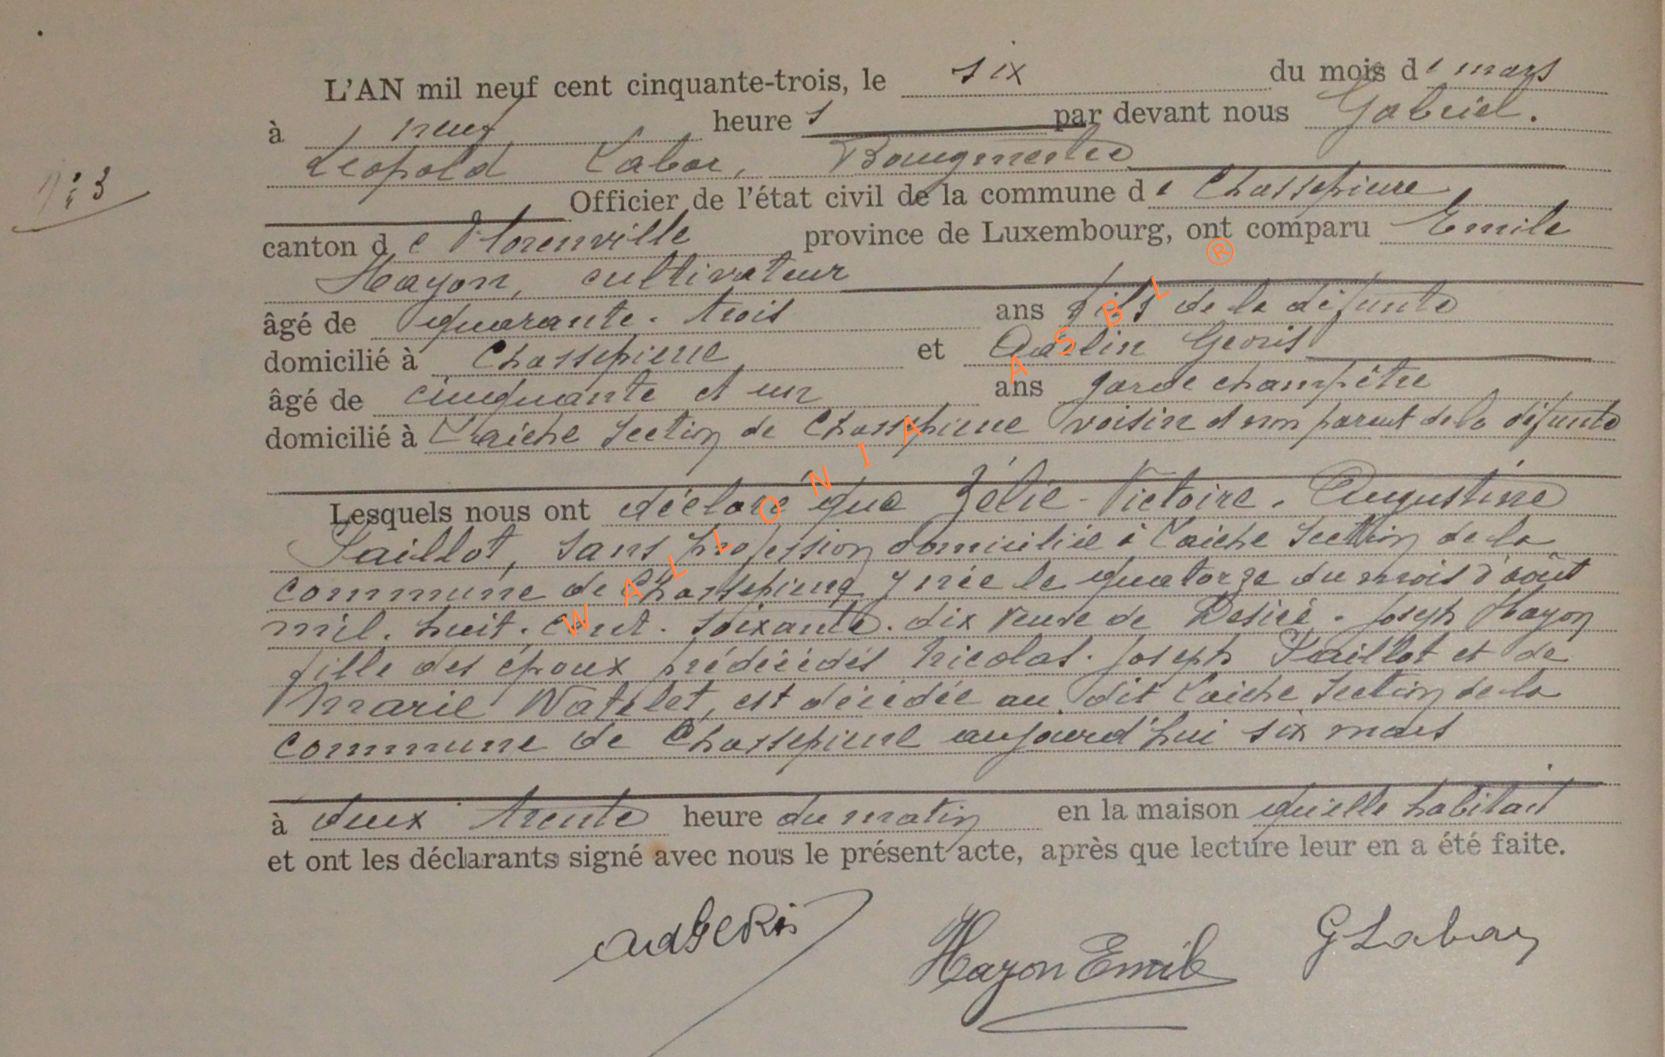 L'AN mil neuf cent cinquante-trois, le six du mois de mars
à neuf heures par devant nous Gabriel.
Léopold Labar, Bourgmestre
N: 3
Officier de l'état civil de la commune de Chassepierre
canton de Florenville province de Luxembourg, ont comparu Emile
Hayon, cultivateur
âgé de quarante-trois ans fils de la défunte
domicilié à Chassepierre et Adelin Georis
âgé de cinquante et un ans garde champêtre
domicilié à Laiche Section de Chassepierre voisin et non parent de la défunte
Lesquels nous ont déclaré que Zélie-Victoire-Augustine
Paillot, sans profession domiciliée à Laiche Section de la
commune de Chassepierre y née le quatorze du mois d'août
mil-huit-cent-soixante-dix veuve de Désiré-Joseph Hayon
fille des époux prédécédés Nicolas-Joseph Paillot et de
Marie Watelet, est décédée au dit Laiche Section de la
commune de Chassepierre aujourd'hui six mars
à deux trente heure du matin en la maison qu'elle habitait
et ont les déclarants signé avec nous le présent acte, après que lecture leur en a été faite.
Hayon Emile
G Labar
WALLONIA ASBL ®